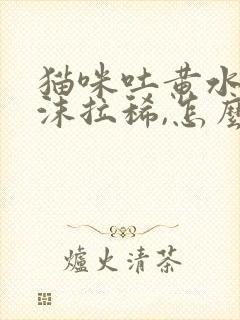 猫咪吐黄水
沫拉稀,怎麼
爐火清茶